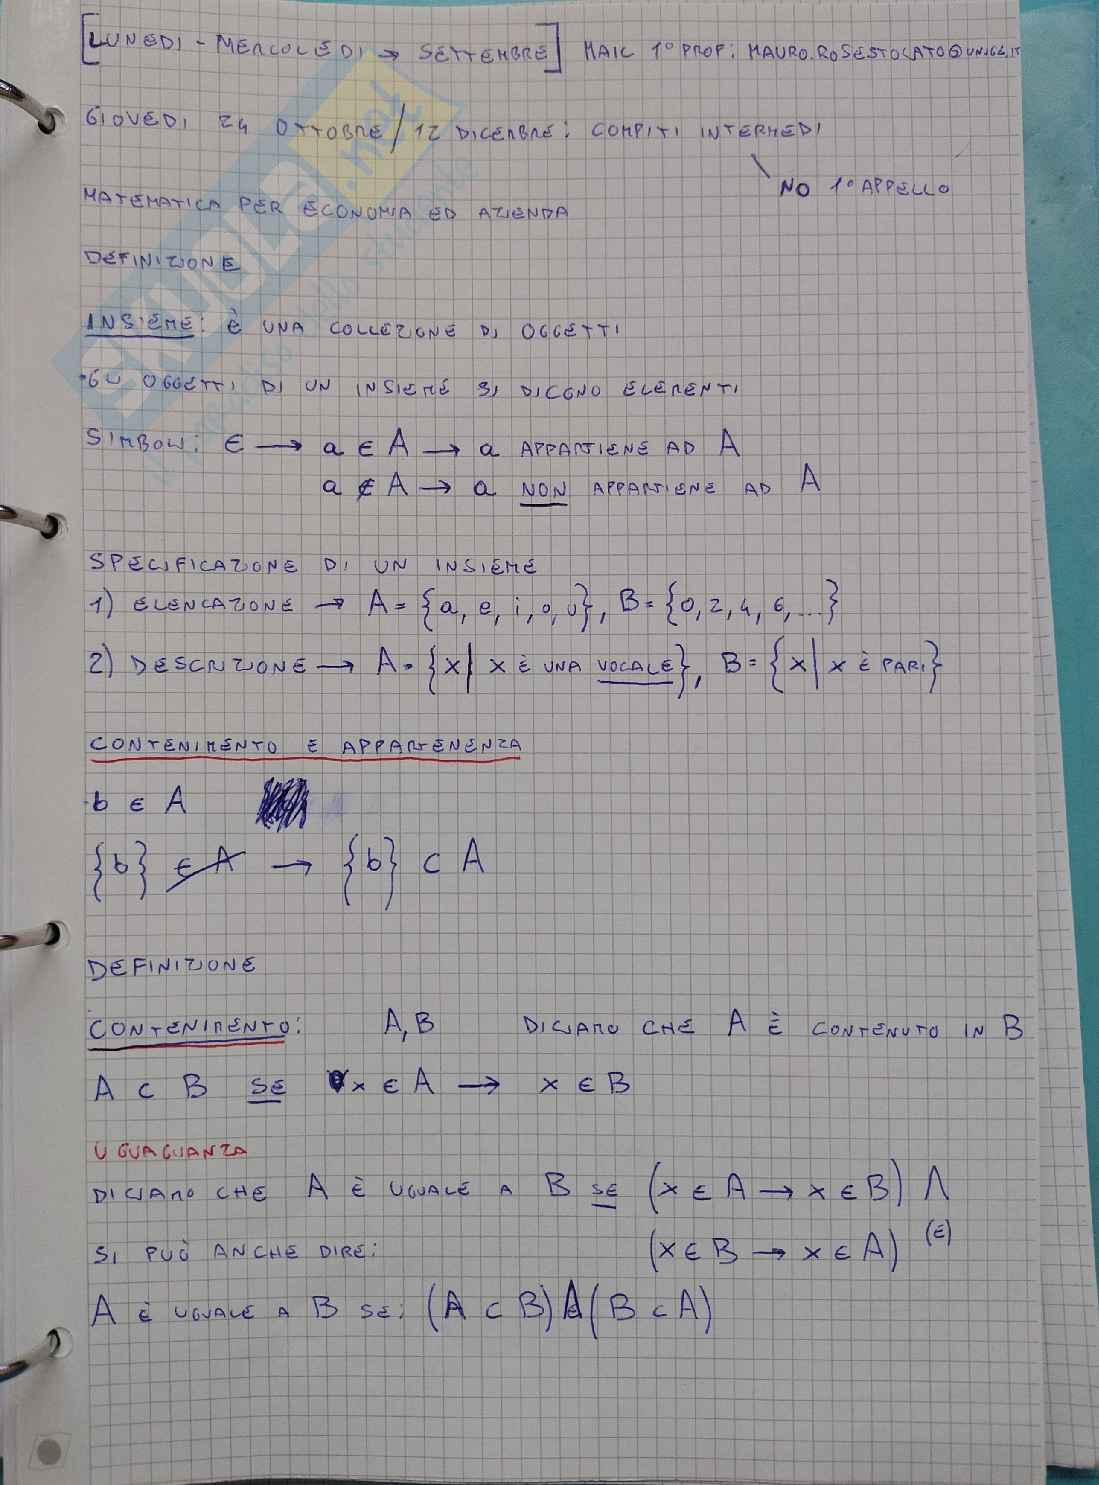 [LUNEDI - MERCOLEDI → SETTEMBRE] MAIL 1° PROF: MAURO.ROSESTOLATO@UNIGE.IT
GIOVEDI 24 OTTOBRE / 12 DICEMBRE: COMPITI INTERMEDI
NO 1° APPELLO
MATEMATICA PER ECONOMIA ED AZIENDA
DEFINIZIONE
INSIEME: È UNA COLLEZIONE DI OGGETTI
•GLI OGGETTI DI UN INSIEME SI DICONO ELEMENTI
SIMBOLI: ∈ → a ∈ A → a APPARTIENE AD A
a ∉ A → a NON APPARTIENE AD A
SPECIFICAZIONE DI UN INSIEME
1) ELENCAZIONE → A = {a, e, i, o, u}, B = {0, 2, 4, 6, ...}
2) DESCRIZIONE → A = {x | x È UNA VOCALE}, B = {x | x È PARI}
CONTENIMENTO E APPARTENENZA
•b ∈ A
{b} ∈ A → {b} ⊂ A
DEFINIZIONE
CONTENIMENTO: A, B DICIAMO CHE A È CONTENUTO IN B
A ⊂ B SE ∀x ∈ A → x ∈ B
UGUAGLIANZA
DICIAMO CHE A È UGUALE A B SE (x ∈ A → x ∈ B) ∧
(E)
SI PUÒ ANCHE DIRE: (x ∈ B → x ∈ A)
A È UGUALE A B SE: (A ⊂ B) ∧ (B ⊂ A)
SKUOLA.net